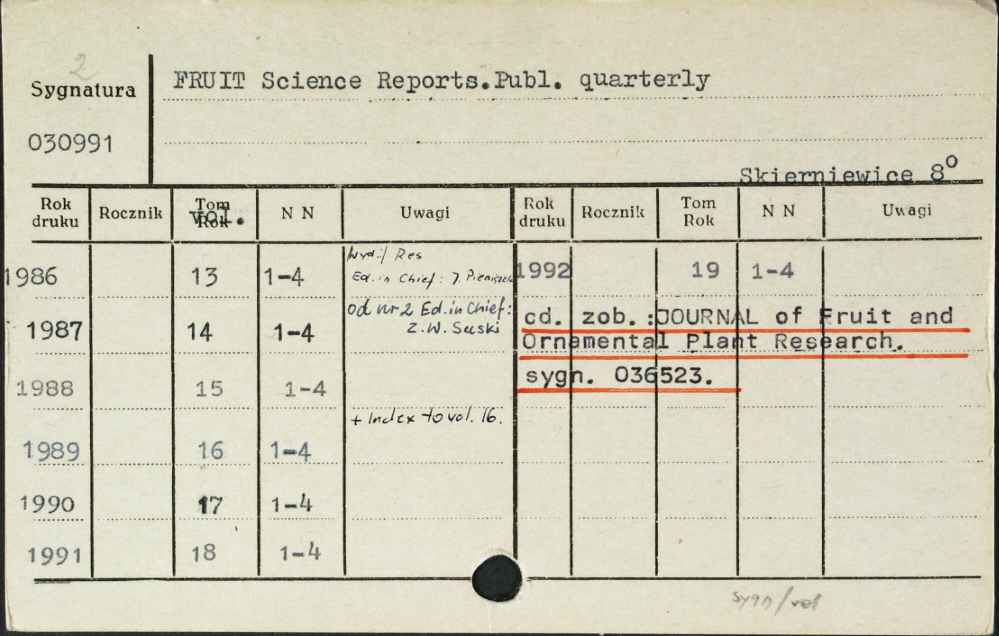 2
Sygnatura
FRUIT Science Reports.Publ. quarterly
030991
Skierniewice 8°
Rok druku Rocznik Tom Rok vol. N N Uwagi Rok druku Rocznik Tom Rok N N Uwagi
1986 13 1-4
Ed. in Chief: J.
1992 19 1-4
1987 14 1-4
od nr 2 Ed. in Chief:
Z.W. Suski
cd. zob.:JOURNAL of Fruit and
Ornamental Plant Research.
sygn. 036523.
1988 15 1-4
1989 16 1-4
+ Index to vol. 16.
1990 17 1-4
1991 18 1-4